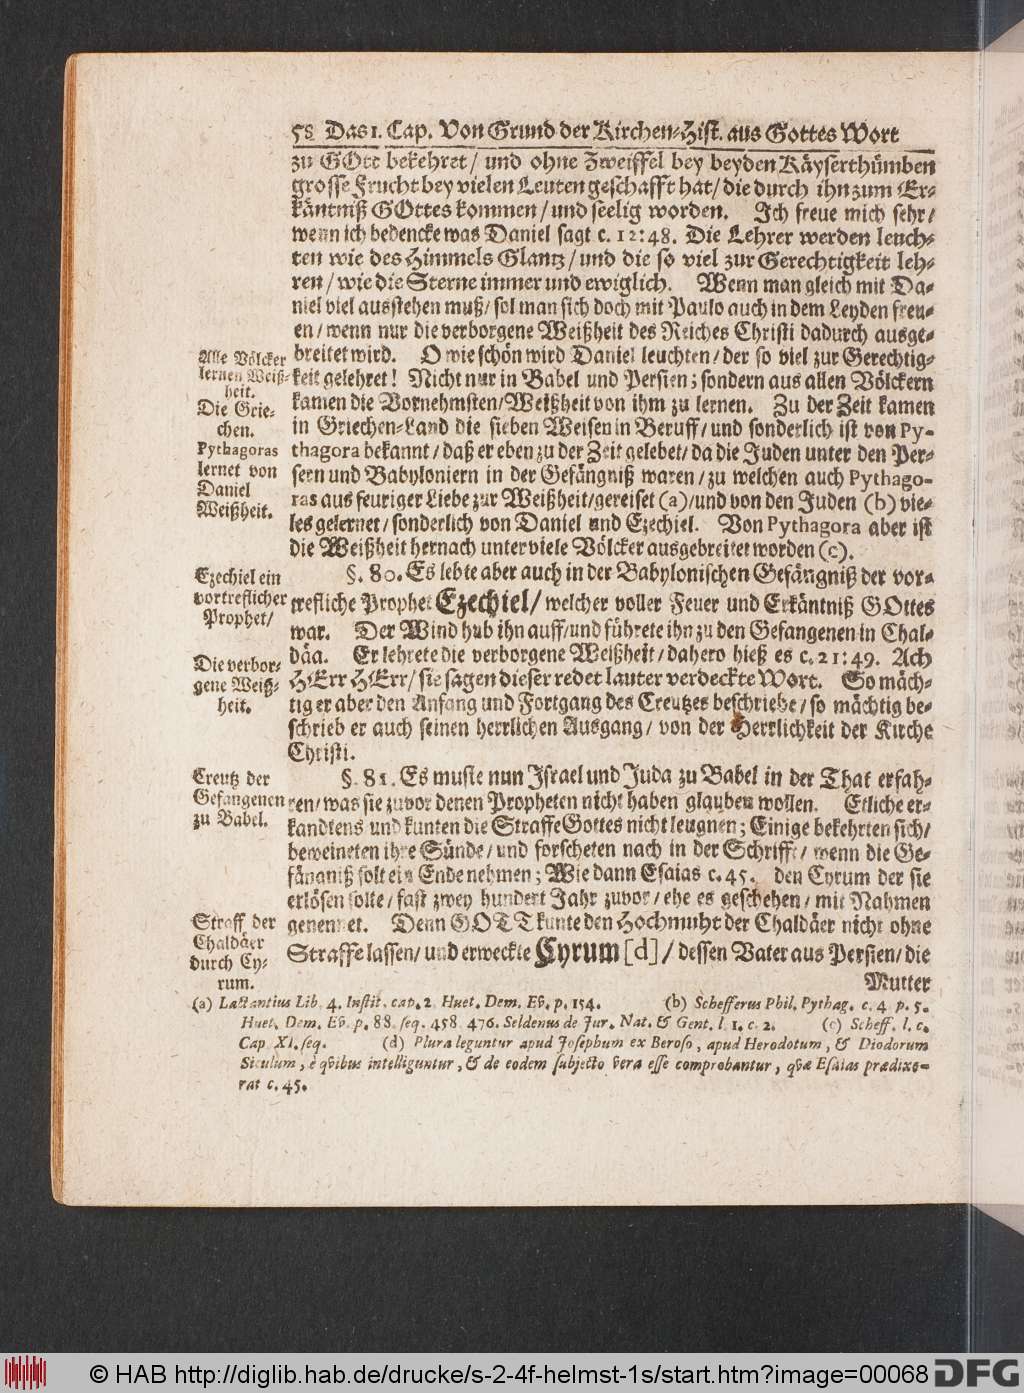 58 Das 1. Cap. Von Grund der Kirchen-Hist. aus Gottes Wort
zu GOtt bekehret / und ohne Zweiffel bey beyden Käyserthümben
grosse Frucht bey vielen Leuten geschafft hat / die durch ihn zum Er-
käntniß GOttes kommen / und seelig worden. Ich freue mich sehr /
wenn ich bedencke was Daniel sagt c. 12:48. Die Lehrer werden leuch-
ten wie des Himmels Glantz / und die so viel zur Gerechtigkeit leh-
ren / wie die Sterne immer und ewiglich. Wenn man gleich mit Da-
niel viel ausstehen muß / sol man sich doch mit Paulo auch in dem Leyden freu-
en / wenn nur die verborgene Weißheit des Reiches Christi dadurch ausge-
breitet wird. O wie schön wird Daniel leuchten / der so viel zur Gerechtig-
keit gelehret! Nicht nur in Babel und Persien; sondern aus allen Völckern
kamen die Vornehmsten / Weißheit von ihm zu lernen. Zu der Zeit kamen
in Griechen-Land die sieben Weisen in Beruff / und sonderlich ist von Py-
thagora bekannt / daß er eben zu der Zeit gelebet / da die Juden unter den Per-
sern und Babyloniern in der Gefängniß waren / zu welchen auch Pythago-
ras aus feuriger Liebe zur Weißheit / gereiset (a) / und von den Juden (b) vie-
les gelernet / sonderlich von Daniel und Ezechiel. Von Pythagora aber ist
die Weißheit hernach unter viele Völcker ausgebreitet worden (c).
Alle Völcker
lernen Weiß-
heit.
Die Grie-
chen.
Pythagoras
lernet von
Daniel
Weißheit.
§. 80. Es lebte aber auch in der Babylonischen Gefängniß der vor-
trefliche Prophet Ezechiel / welcher voller Feuer und Erkäntniß GOttes
war. Der Wind hub ihn auff / und führete ihn zu den Gefangenen in Chal-
däa. Er lehrete die verborgene Weißheit / dahero hieß es c. 21:49. Ach
HErr HErr / sie sagen dieser redet lauter verdeckte Wort. So mäch-
tig er aber den Anfang und Fortgang des Creutzes beschriebe / so mächtig be-
schrieb er auch seinen herrlichen Ausgang / von der Herrlichkeit der Kirche
Christi.
Ezechiel ein
vortreflicher
Prophet /
Die verbor-
gene Weiß-
heit.
§. 81. Es muste nun Israel und Juda zu Babel in der That erfah-
ren / was sie zuvor denen Propheten nicht haben glauben wollen. Etliche er-
kandtens und kunten die Straffe Gottes nicht leugnen; Einige bekehrten sich /
beweineten ihre Sünde / und forscheten nach in der Schrifft / wenn die Ge-
fängniß solt ein Ende nehmen; Wie dann Esaias c. 45. den Cyrum der sie
erlösen solte / fast zwey hundert Jahr zuvor / ehe es geschehen / mit Nahmen
genennet. Denn GOTT kunte den Hochmuht der Chaldäer nicht ohne
Straffe lassen / und erweckte Cyrum [d] / dessen Vater aus Persien / die
Mutter
Creutz der
Gefangenen
zu Babel.
Straff der
Chaldäer
durch Cy-
rum.
(a) Lactantius Lib. 4. Instit. cap. 2. Huet. Dem. Ev. p. 154. (b) Schefferus Phil. Pythag. c. 4 p. 5.
Huet. Dem. Ev. p. 88. seq. 458. 476. Seldenus de Jur. Nat. & Gent. l. 1. c. 2. (c) Scheff. l. c.
Cap XI. seq. (d) Plura leguntur apud Josephum ex Beroso, apud Herodotum, & Diodorum
Siculum, è qvibus intelliguntur, & de eodem subjecto vera esse comprobantur, qvæ Esaias prædixe-
rat c. 45.
© HAB http://diglib.hab.de/drucke/s-2-4f-helmst-1s/start.htm?image=00068
DFG